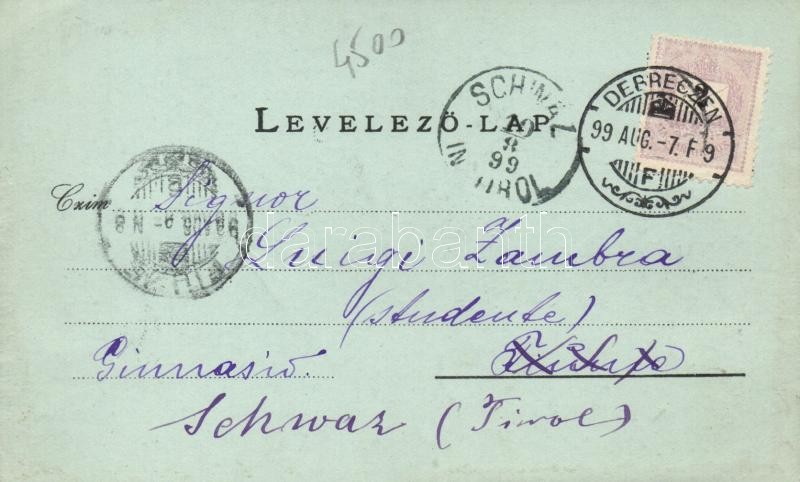 4500
LEVELEZŐ-LAP
SCHWAZ
99
IN TIROL
DEBRECZEN
99 AUG.-7. F 9
F
Czim Signor
99 AUG N 8
darabanth
Luigi Zambra
(studente)
Ginnasio
Schwaz (Tirol)